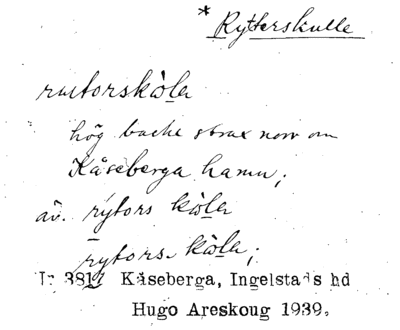 * Rytterskulle
rutorskòla
hög backe strax norr om
Kåseberga hamn;
äv. rytors kòla
rytors. kòla;
3817 Kåseberga, Ingelstads hd
Hugo Areskoug 1939.